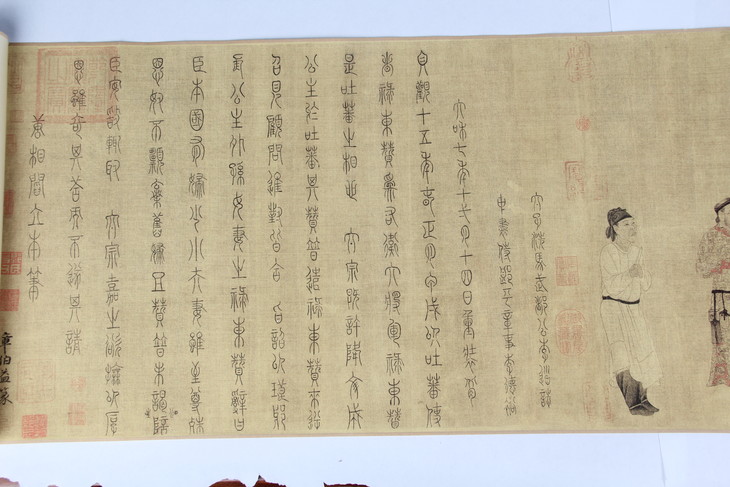 太子洗馬武都公李道誌
中書侍郎平章事李德裕
大和七年十一月十四日重裝背
貞觀十五年春正月甲戌以吐蕃使
者祿東贊為右衛大將軍祿東贊
是吐蕃之相也太宗既許降文成
公主於吐蕃其贊普遣祿東贊來逆
召見顧問進對皆合旨詔以瑯琊
長公主外孫女妻之祿東贊辭曰
臣本國有婦少小夫妻雖至尊殊
恩奴不願棄舊婦且贊普未謁陪
臣安敢輒取太宗嘉之欲撫以厚
恩雖奇其答而不遂其請
唐相閻立本筆
章伯益篆